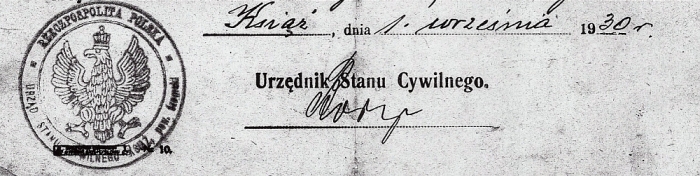 Książ, dnia 1. września 1930 r.
Urzędnik Stanu Cywilnego.
RZECZPOSPOLITA POLSKA
URZĄD STANU CYWILNEGO
10.